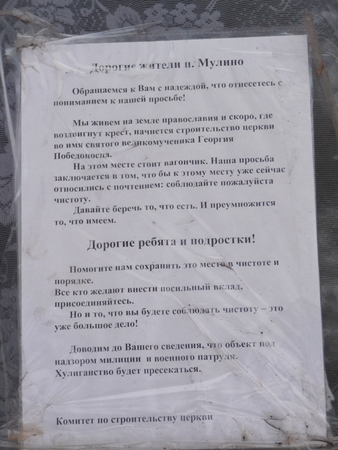 Дорогие жители п. Мулино
Обращаемся к Вам с надеждой, что отнесетесь с
пониманием к нашей просьбе!
Мы живем на земле православия и скоро, где
воздвигнут крест, начнется строительство церкви
во имя святого великомученика Георгия
Победоносца.
На этом месте стоит вагончик. Наша просьба
заключается в том, что бы к этому месту уже сейчас
относились с почтением: соблюдайте пожалуйста
чистоту.
Давайте беречь то, что есть. И преумножится
то, что имеем.
Дорогие ребята и подростки!
Помогите нам сохранить это место в чистоте и
порядке.
Все кто желают внести посильный вклад,
присоединяйтесь.
Но и то, что вы будете соблюдать чистоту – это
уже большое дело!
Доводим до Вашего сведения, что объект под
надзором милиции и военного патруля.
Хулиганство будет пресекаться.
Комитет по строительству церкви